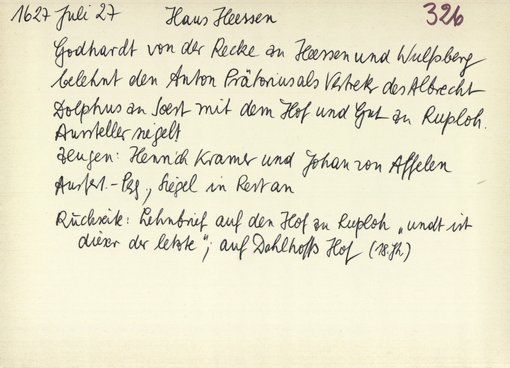 1627 Juli 27 Haus Heessen 326
Godhardt von der Recke zu Heessen und Wulfsberg
belehnt den Anton Prätorius als Vertreter des Albrecht
Dolphus zu Soest mit dem Hof und Gut zu Ruploh.
Aussteller siegelt
Zeugen: Henrich Kramer und Johan von Affelen
Ausf.-Pgt., Siegel in Rest an
Rückseite: Lehnbrief auf den Hof zu Ruploh „undt ist
dieser der letzte“; auf Dahlhoffs Hof (18. Jh)